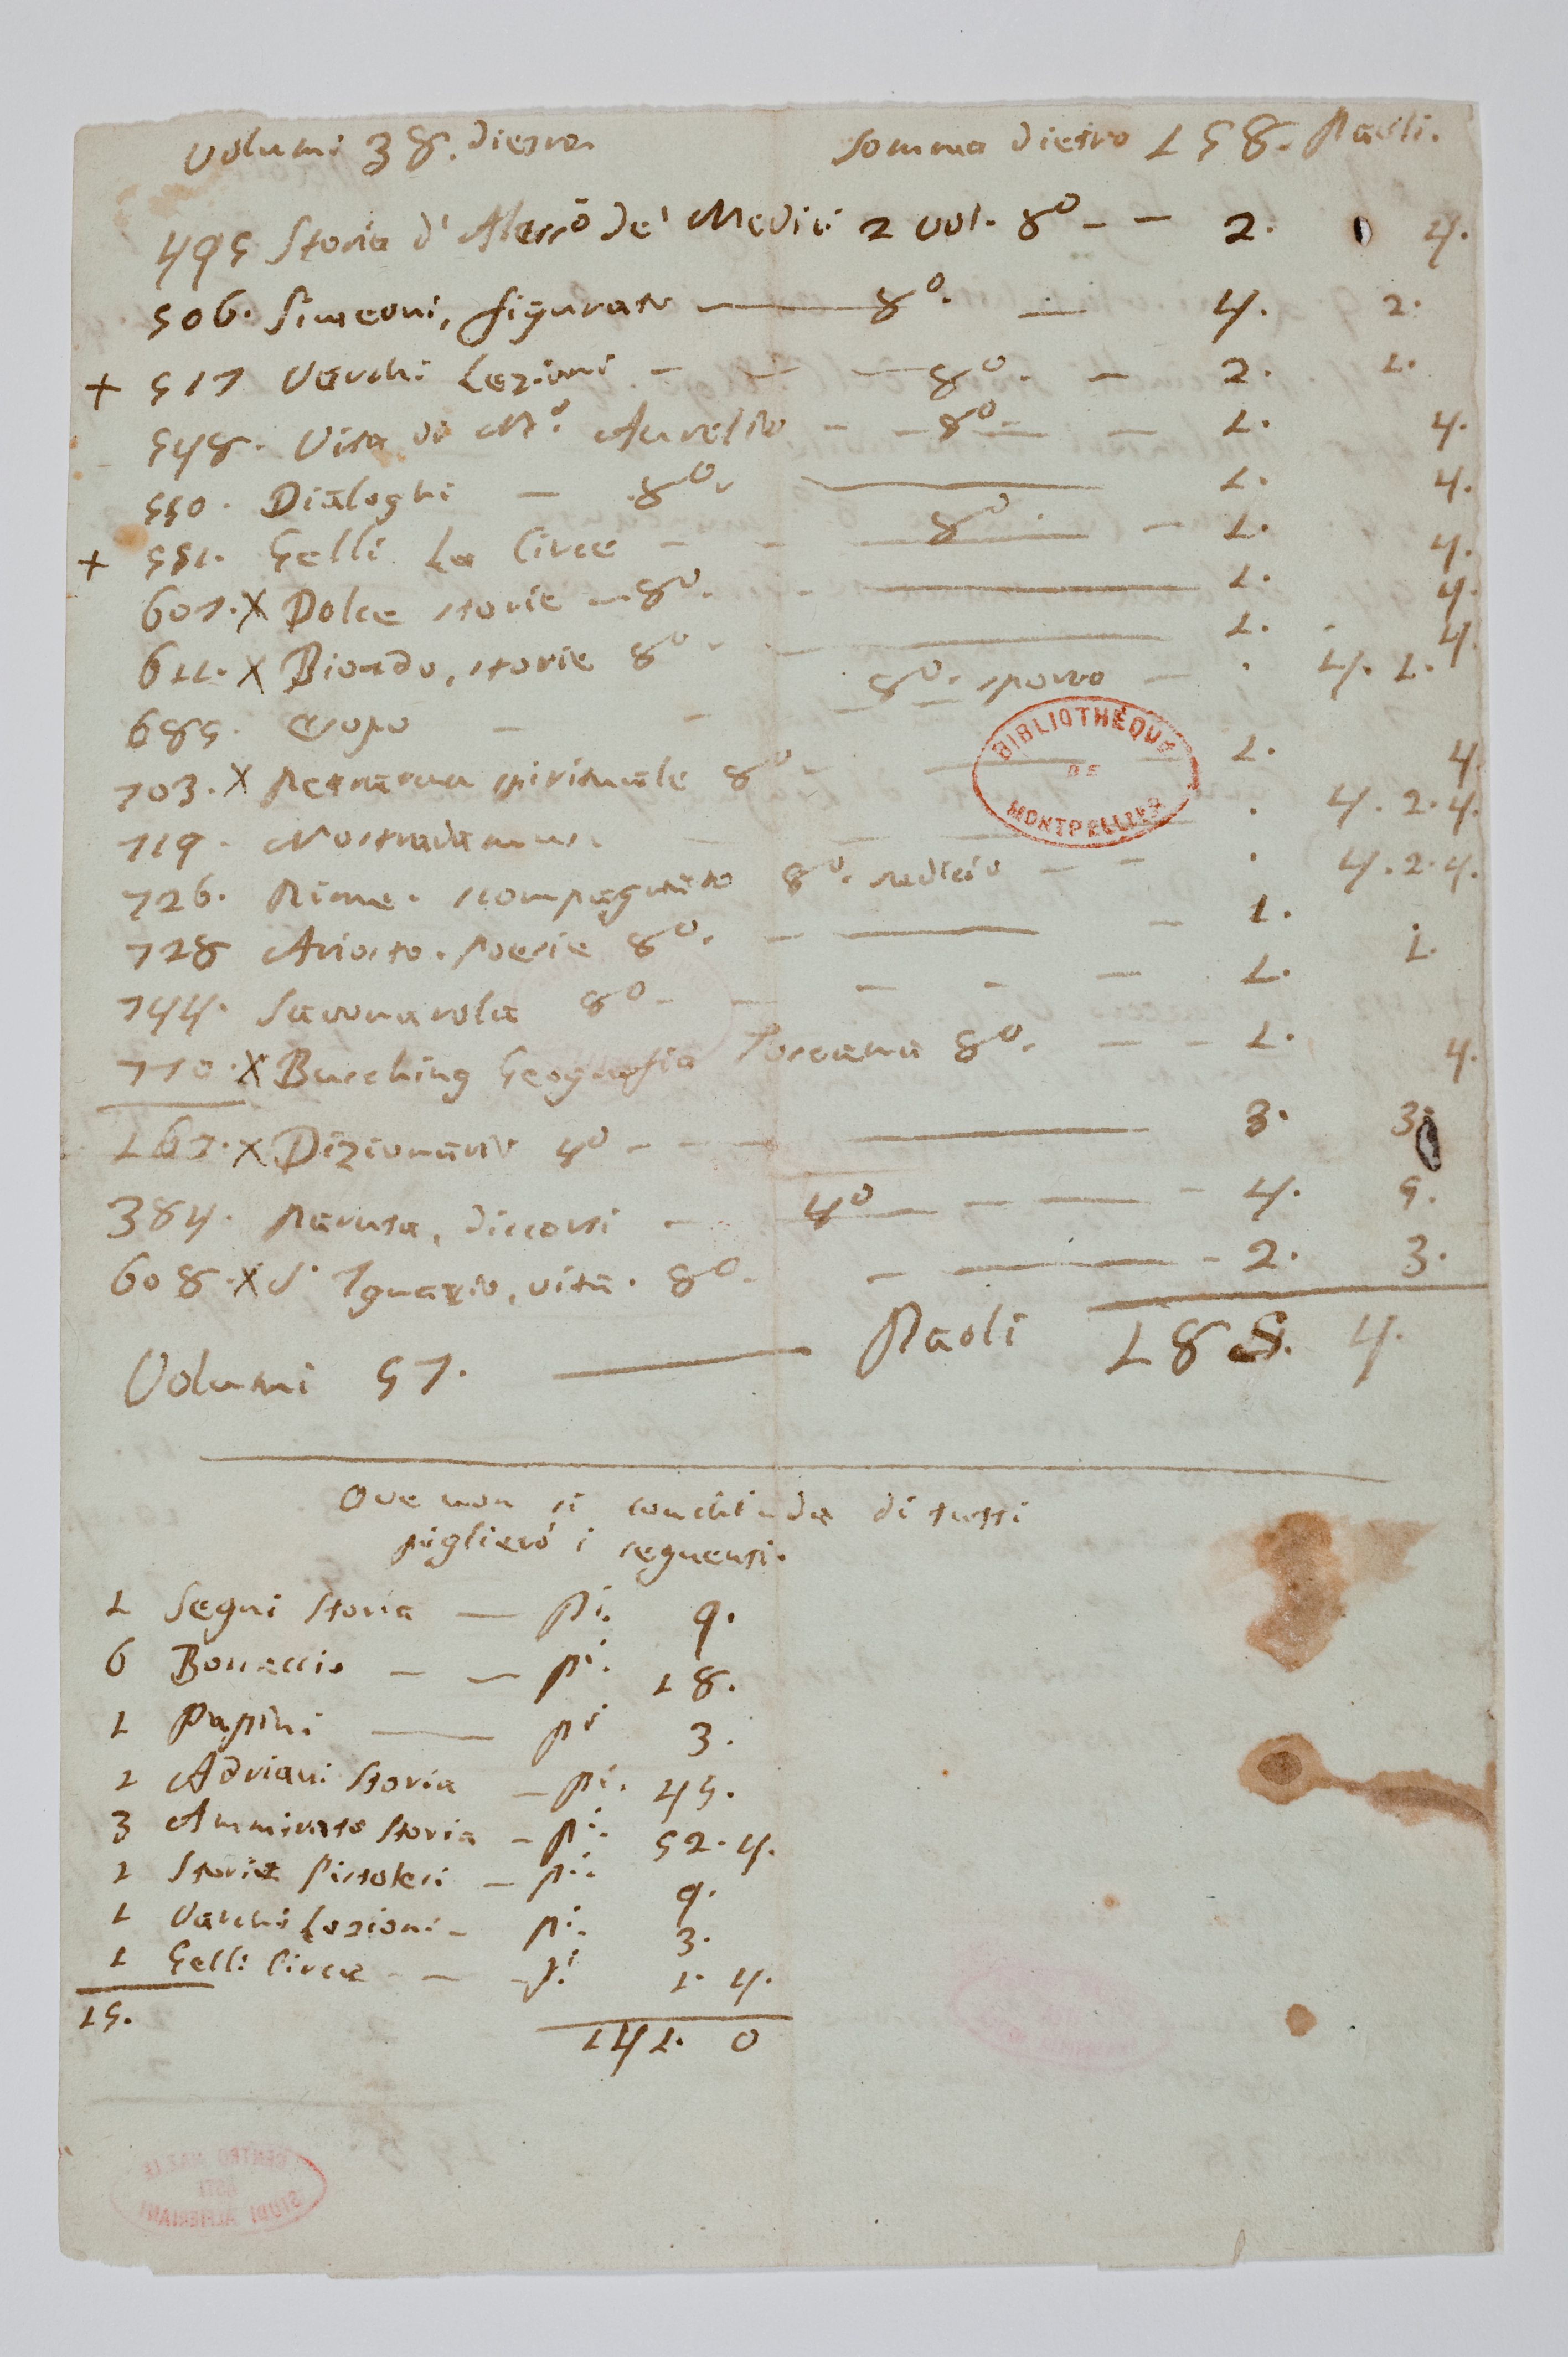 Volumi 38. dietro. Somma dietro 158. Paoli.
495 Storia d' Alessõ de' Medici 2 vol. 8º - - 2. 4.
506. Simeoni, figurato — 8º. — 4. 2.
+ 517 Varchi Lezioni - - - 8º. - 2. 1.
548. Vita di Mº. Aurelio - - 8º - - 1. 4.
550. Dialoghi - 8º. — 1. 4.
+ 551. Gelli La Circe - - 8º. - 1. 4.
607. X Dolce storie - 8º. - — 1. 4.
611. X Biondo, storie 8º - — 1. 4.
685. Esopo - - - 8º. sporco - . 4. 1.
703. X Petrarca spirituale 8º - — 1. 4.
719. Nostradamus. - - . 4. 2. 4.
726. Rime. scompagnato 8º. sudicio - - . 4. 2. 4.
728 Ariosto. Poesie 8º. - — - 1. 1.
744. Savonarola 8º - - - - - 1.
770. X Busching Geografia Toscana 8º. - - 1. 4.
167. X Dizionario 4º - - - — 3. 3.
384. Paruta, discorsi - 4º — - — - 4. 5.
608. X S. Ignazio, vita. 8º. - — - 2. 3.
Volumi 57. — Paoli 188. 4.
Ove non si conchiuda di tutti
piglierò i seguenti.
1 Segni Storia — pi. 9.
6 Boccaccio - - pi. 18.
1 Papini — pi 3.
1 Adriani Storia - pi. 45.
3 Ammirato Storia - pi. 52. 4.
1 Storie Pistolesi - pi. 9.
1 Varchi Lezioni - pi. 3.
1 Gelli Circe - - pi 1. 4.
15. 141. 0
BIBLIOTHÉQUE
DE
MONTPELLIER
CENTRO NAZ.LE
ASTI
STUDI ALFIERIANI